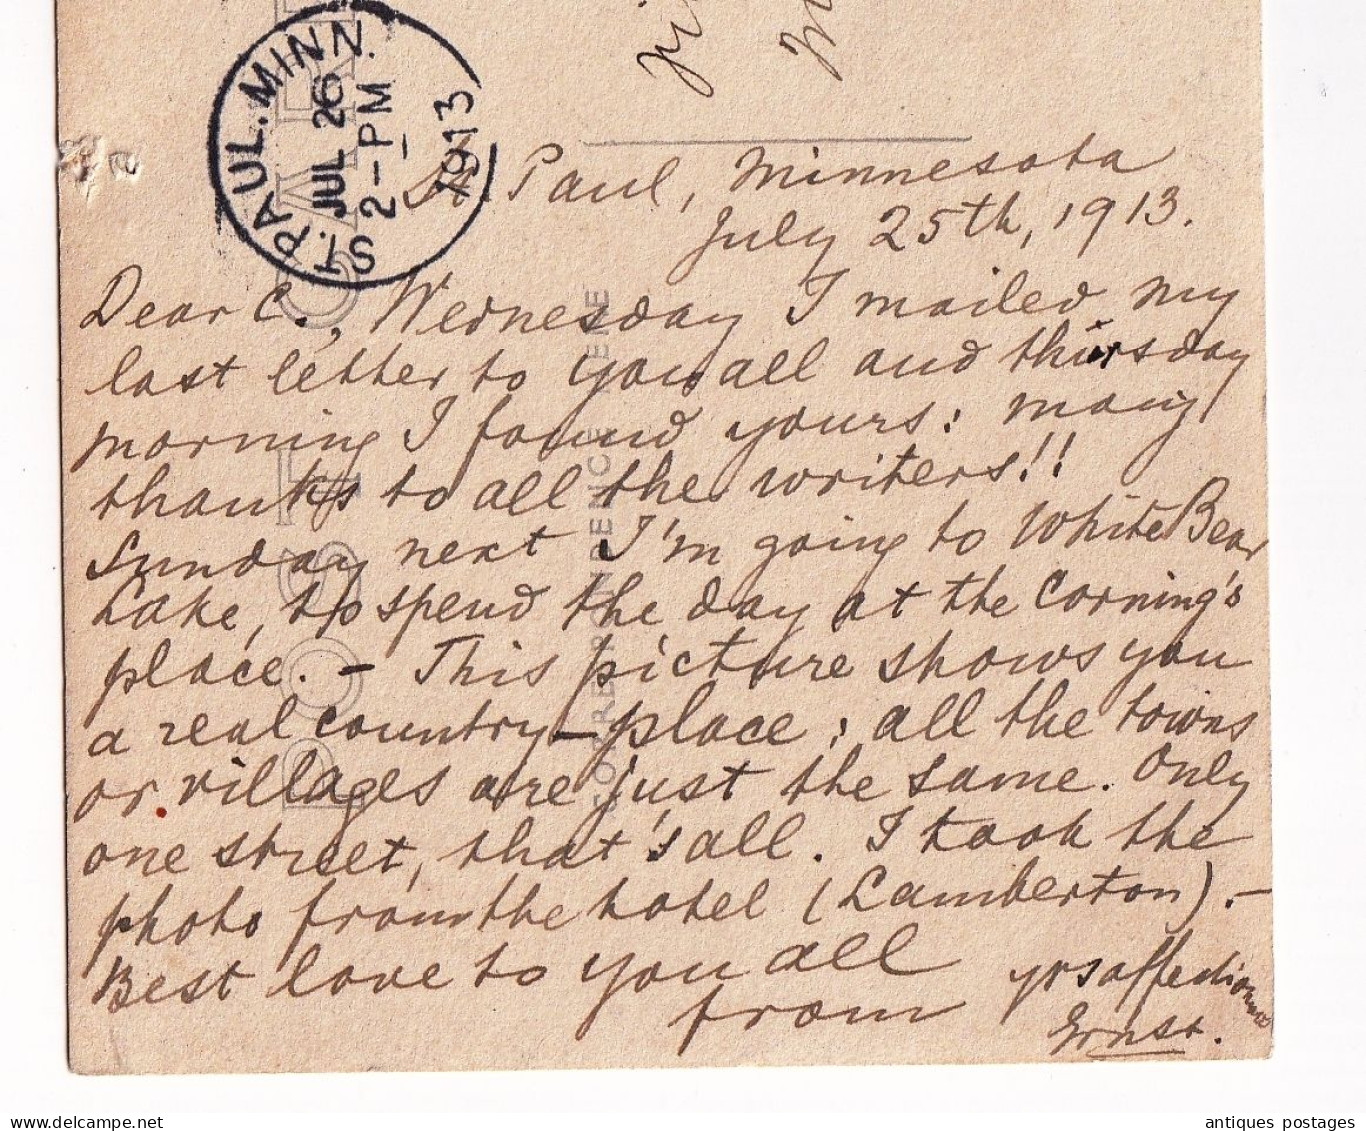 ST. PAUL. MINN.
JUL 26
2-PM
1913
POST CARD
CORRESPONDENCE HERE
St. Paul, Minnesota
July 25th, 1913.
Dear C., Wednesday I mailed my
last letter to you all and thursday
morning I found yours: many
thanks to all the writers!!
Sunday next I'm going to White Bear
Lake, to spend the day at the Corning's
place. - This picture shows you
a real country-place; all the towns
or villages are just the same. Only
one street, that's all. I took the
photo from the hotel (Lamberton). -
Best love to you all
from yrs affectionate
Ernst.
antiques postages
delcampe.net